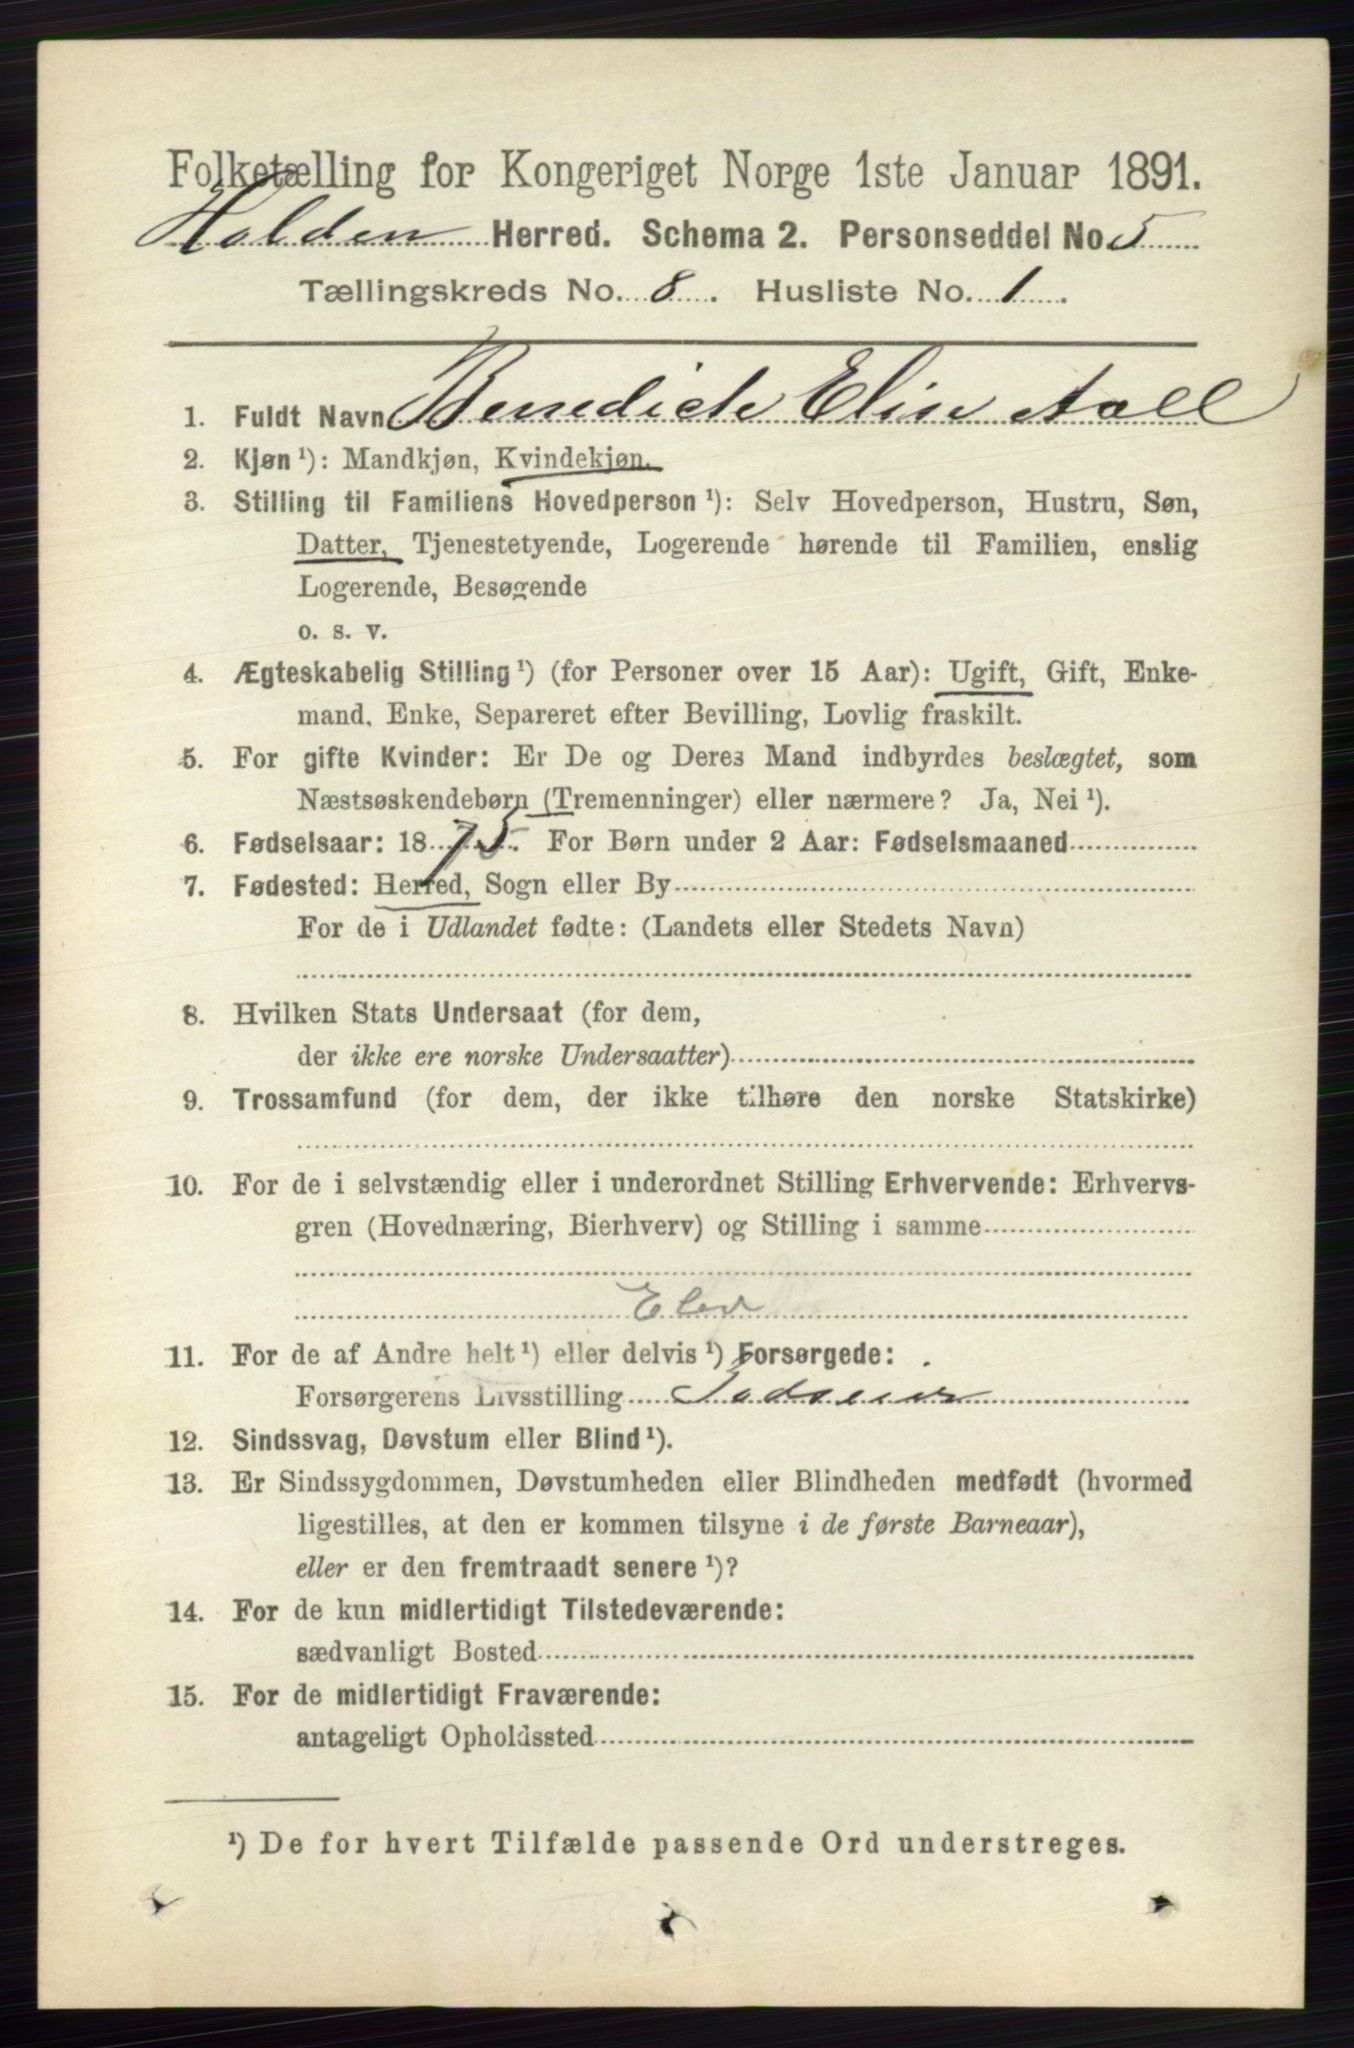 Folketælling for Kongeriget Norge 1ste Januar 1891.
Holden Herred. Schema 2. Personseddel No. 5
Tællingskreds No. 8. Husliste No. 1.
1. Fuldt Navn Benedicte Elise Aall
2. Kjøn ¹): Mandkjøn, Kvindekjøn.
3. Stilling til Familiens Hovedperson ¹): Selv Hovedperson, Hustru, Søn,
Datter, Tjenestetyende, Logerende hørende til Familien, enslig
Logerende, Besøgende
o. s. v.
4. Ægteskabelig Stilling ¹) (for Personer over 15 Aar): Ugift, Gift, Enke-
mand, Enke, Separeret efter Bevilling, Lovlig fraskilt.
5. For gifte Kvinder: Er De og Deres Mand indbyrdes beslægtet, som
Næstsøskendebørn (Tremenninger) eller nærmere? Ja, Nei ¹).
6. Fødselsaar: 1875. For Børn under 2 Aar: Fødselsmaaned
7. Fødested: Herred, Sogn eller By
For de i Udlandet fødte: (Landets eller Stedets Navn)
8. Hvilken Stats Undersaat (for dem,
der ikke ere norske Undersaatter)
9. Trossamfund (for dem, der ikke tilhøre den norske Statskirke)
10. For de i selvstændig eller i underordnet Stilling Erhvervende: Erhvervs-
gren (Hovednæring, Bierhverv) og Stilling i samme
Elev
11. For de af Andre helt ¹) eller delvis ¹) Forsørgede:
Forsørgerens Livsstilling
12. Sindssvag, Døvstum eller Blind ¹).
13. Er Sindssygdommen, Døvstumheden eller Blindheden medfødt (hvormed
ligestilles, at den er kommen tilsyne i de første Barneaar),
eller er den fremtraadt senere ¹)?
14. For de kun midlertidigt Tilstedeværende:
sædvanligt Bosted
15. For de midlertidigt Fraværende:
antageligt Opholdssted
¹) De for hvert Tilfælde passende Ord understreges.